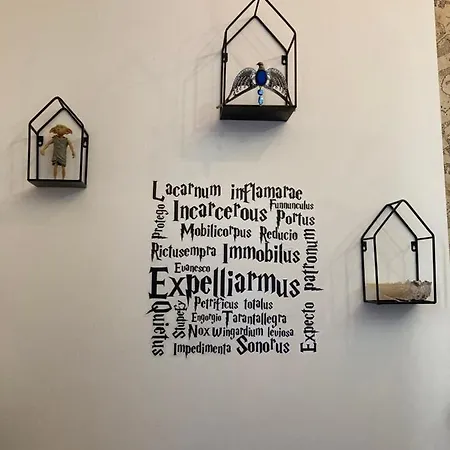 Lacarnum inflamarae
Protego
Incarcerous
Funnunculus
Portus
Mobilicorpus Reducio
Rictusempra Immobilus
Evanesco
Expelliarmus
Expecto patronum
Quietus
Stupefy
Petrificus totalus
Engorgio Tarantallegra
Nox wingardium leviosa
Impedimenta Sonorus